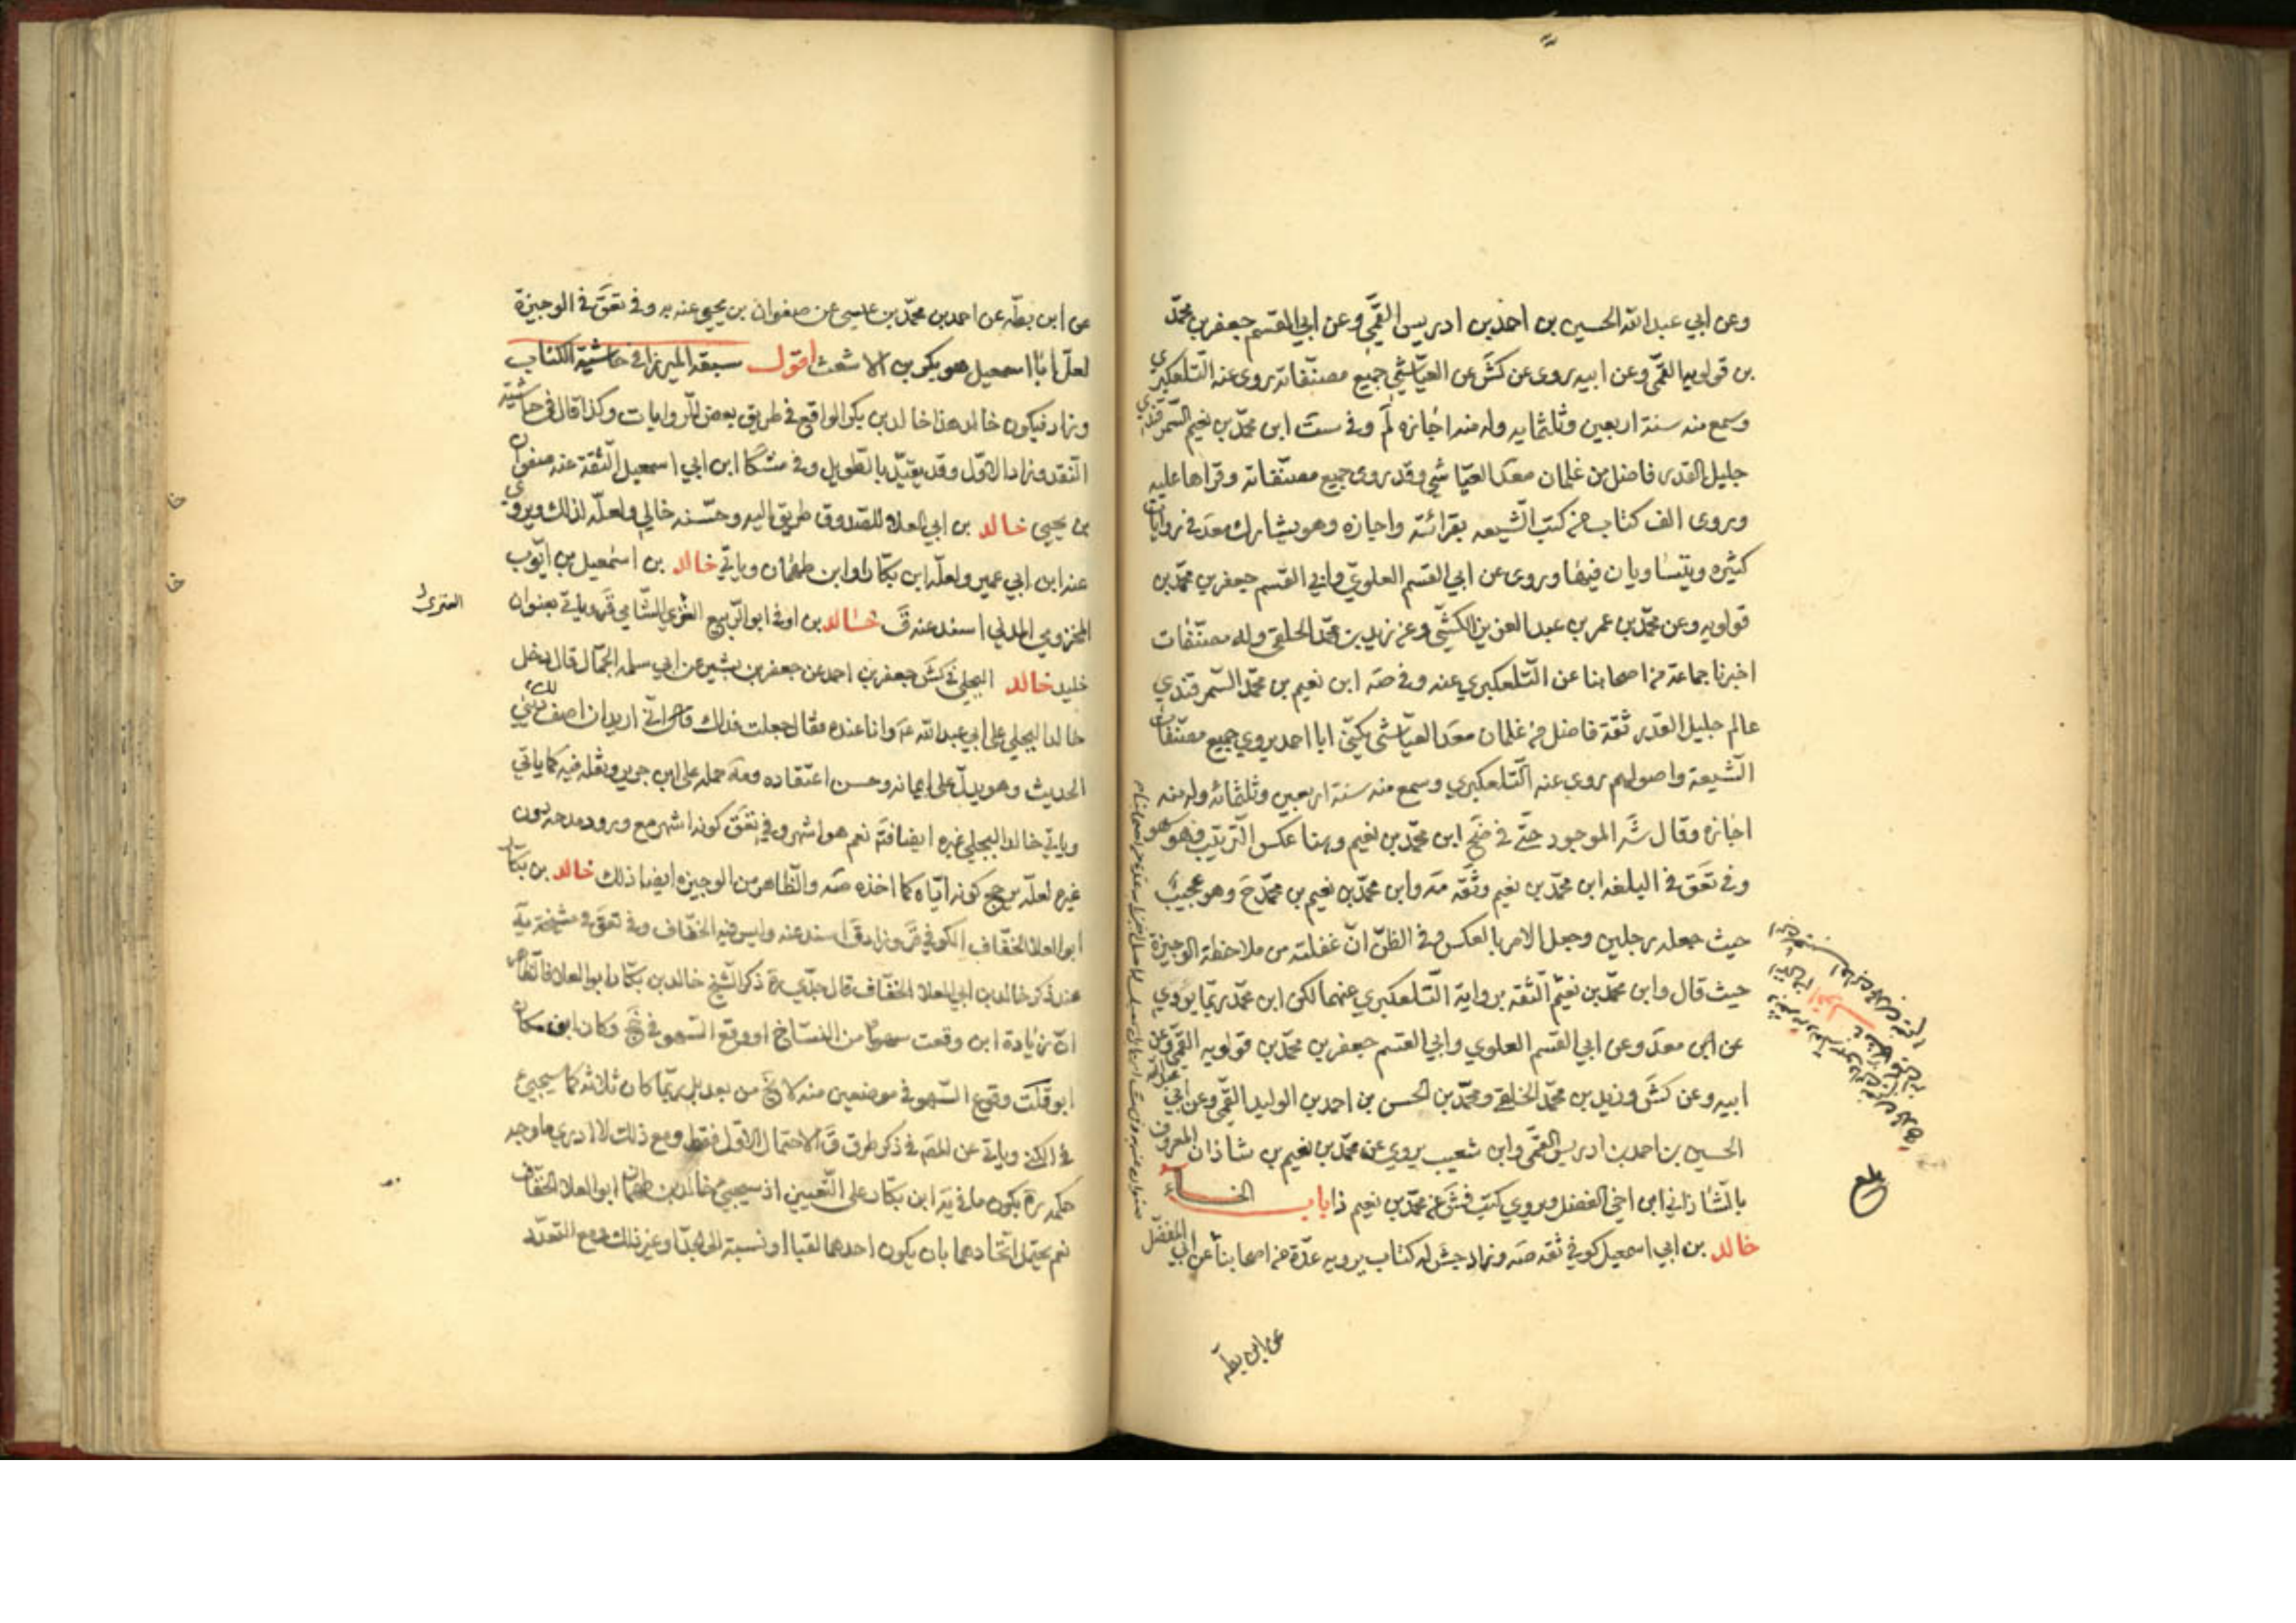 وعن ابي عبد الله الحسين بن احمد بن ادريس القمّي وعن ابي القسم جعفر بن محمّد
بن قولويه القمّي وعن ابيه روى عن كش عن العيّاشي جميع مصنّفاته روى عنه التّلعكبري
وسمع منه سنة اربعين وثلثمايه وله منه اجازه لم وفي ست ابن محمّد بن نعيم السّمرقندي
جليل القدر فاضل من غلمان محمّد العيّاشي وقد روى جميع مصنّفاته وقراها عليه
وروى الف كتاب من كتب الشّيعه بقرائته واجازه وهو يشارك محمد في روايات
كثيره ويتساويان فيها وروى عن ابي القسم العلويّ وابي القسم جعفر بن محمّد بن
قولويه وعن محمّد بن عمر بن عبد العزيز الكشّي وعن زيد بن محمّد الحلقي وله مصنّفات
اخبرنا جماعة من اصحابنا عن التّلعكبري عنه وفي صه ابن نعيم بن محمّد السّمرقندي
عالم جليل القدر ثقة فاضل من غلمان محمد العيّاشي يكنّى ابا احمد يروي جميع مصنّفات
الشّيعة واصولهم روى عنه التّلعكبري وسمع منه سنة اربعين وثلثمائه وله منه
اجازه وقال شه الموجود حتّى في ضح ابن محمّد بن نعيم وهنا عكس التّرتيب فهو سهو
وفي تعق في البلغه ابن محمّد بن نعيم وثّقه مه وابن محمّد بن نعيم بن محمّد ح وهو عجيب
حيث جعله رجلين وجعل الامر بالعكس وفي الظنّ انّ غفلته من ملاحظة الوجيزة
حيث قال وابن محمّد بن نعيم الثّقه برواية التّلعكبري عنهما لكن ابن محمّد ربّما يروي
عن ابي محمد وعن ابي القسم العلوي وابي القسم جعفر بن محمّد بن قولويه القمّي وعن
ابيه وعن كش وزيد بن محمّد الحلقي ومحمّد بن الحسن بن احمد بن الوليد القمّي وعن ابي عبد الله
الحسين بن احمد بن ادريس القمّي وابن شعيب يروي عن محمّد بن نعيم بن شاذان المعروف
بالشّاذاني ابن اخي الفضل ويروي كتب فش عن محمّد بن نعيم ذا باب الخاء
خالد بن ابي اسمعيل كوفي ثقه صه وزاد جش له كتاب يرويه عدّة من اصحابنا عن ابي المفضل
عن ابن بطّه
عن ابن بطّه عن احمد بن محمّد بن عيسى عن صفوان بن يحيى عنه به وفي تعق في الوجيزة
لعلّ ابا اسمعيل هو بكر بن الاشعث اقول سبقه الميرزا في حاشية الكتاب
وزاد فيكون خالد هذا خالد بن بكر الواقع في طريق بعض الرّوايات وكذا قال في حاشية
النّقد وزاد الاوّل وقد يقيّد بالطّويل وفي مشكا ابن ابي اسمعيل الثّقة عنه صفوان
بن يحيى خالد بن ابي العلا للصّدوق طريق اليه وحسّنه خالي ولعلّه لذلك ويروي
عنه ابن ابي عمير ولعلّه ابن بكّار او ابن طهمان وياتي خالد بن اسمعيل بن ايّوب
المخزومي المدني اسند عنه ق خالد بن اوفى ابو الرّبيع العنزي الشّامي قر وياتي بعنوان
العنزي
خليد خالد البجلي في كش جعفر بن احمد عن جعفر بن بشير عن ابي سلمه الجمّال قال دخل
خالد البجلي على ابي عبد الله ع وانا عنده فقال جعلت فداك انّي اريد ان اصف لك ديني
الحديث وهو يدلّ على ايمانه وحسن اعتقاده ومه حمله على ابن جرير ونقله فيه كما ياتي
وياتي خالد البجلي غيره ايضا فتم نعم هو اشهر وفي تعق كونه اشهر مع ورود مدحه دون
غيره لعلّه يرجّح كونه ايّاه كما اخذه صه والظّاهر من الوجيزه ايضا ذلك خالد بن بكّار
ابو العلا الخفّاف الكوفي قر وزاد ق اسند عنه وليس فيه الخفّاف وفي تعق في مشيخة يه
عند ذكر خالد بن ابي العلا الخفّاف قال جدّي ره ذكر الشّيخ خالد بن بكّار ابو العلا فالظّاهر
انّ زيادة ابن وقعت سهوا من النسّاخ او وقع السّهو في جخ وكان ابن مكان
ابو قلت وقوع السّهو في موضعين منه لا يخ من بعد بل ربّما كان ثلاثه كما سيجيئ
في الكنى وياتي عن المص في ذكر طرق ق الاحتمال الاوّل فقط ومع ذلك لا ادري ما وجه
حكمه ره بكون ما في يه ابن بكّار على التّعيين اذ سيجيئ خالد بن طهمان ابو العلا الخفّاف
نعم يحتمل اتّحادهما بان يكون احدهما لقبا او نسبة الى الجدّ او غير ذلك ومع التعدّد